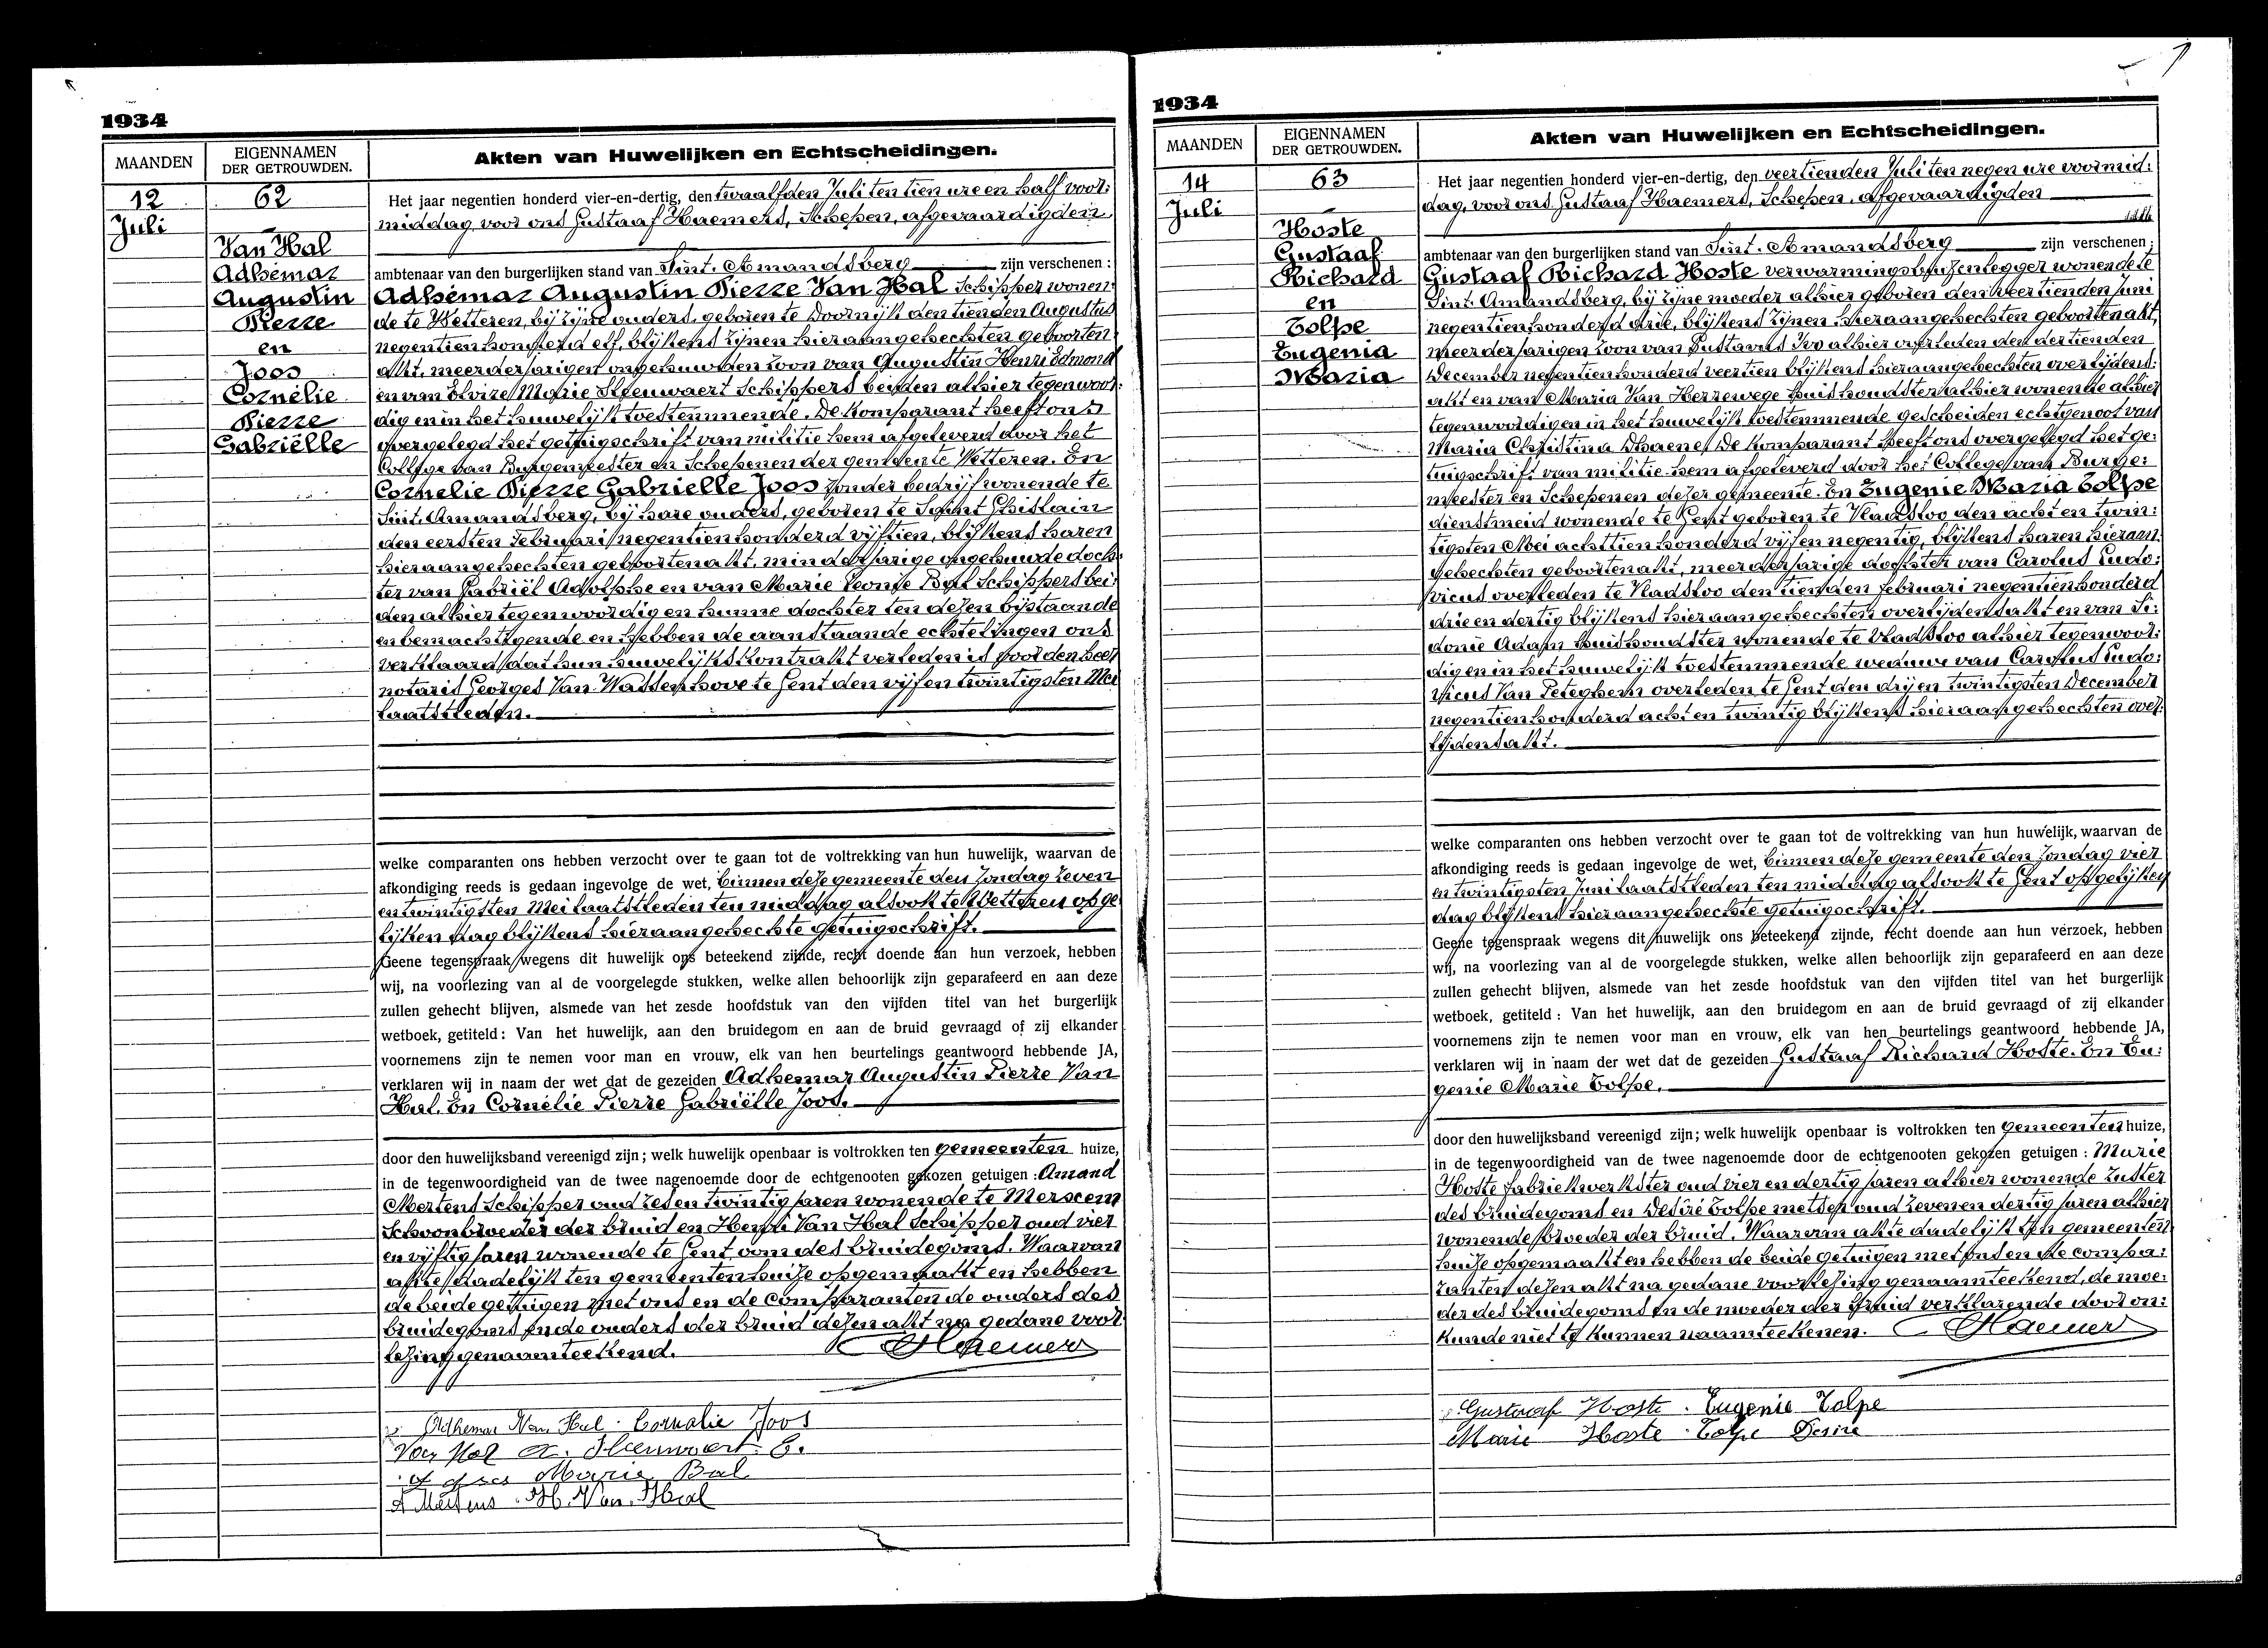 1934
MAANDEN
EIGENNAMEN
DER GETROUWDEN.
Akten van Huwelijken en Echtscheidingen.
12
Juli
62
Van Hal
Adhémar
Augustin
Pierre
en
Joos
Cornélie
Pierre
Gabriëlle
Het jaar negentien honderd vier-en-dertig, den twaalfden Juli ten tien ure en half voor:
middag voor ons Gustaaf Haemers, Schepen, afgevaardigden
ambtenaar van den burgerlijken stand van Sint-Amandsberg zijn verschenen :
Adhémar Augustin Pierre Van Hal Schipper wonen:
de te Wetteren, bij zijne ouders, geboren te Doornijk den tienden Augustus
negentienhonderd elf, blijkens zijnen hieraangehechten geboorten:
akt, meerderjarigen ongehuwden zoon van Augustin Henri Edmond
en van Elvire Marie Steenwaert Schippers beiden alhier tegenwoor:
dig en in het huwelijk toestemmende. De komparant heeft ons
overgelegd het getuigschrift van militie hem afgeleverd door het
College van Burgemeester en Schepenen der gemeente Wetteren. En
Cornelie Pierre Gabrielle Joos zonder bedrijf wonende te
Sint-Amandsberg, bij hare ouders, geboren te Saint Ghislain
den eersten Februari negentienhonderd vijftien, blijkens haren
hieraangehechten geboortenakt, minderjarige ongehuwde doch:
ter van Gabriël Adolphe en van Marie Leonie Bal Schippers bei:
den alhier tegenwoordig en hunne dochter ten dezen bijstaande
en bemachtigende en hebben de aanstaande echtelingen ons
verklaard dat hun huwelijkskontrakt verleden is voor den heer
notaris Georges Van Wassenhove te Gent den vijf en twintigsten Mei
laatstleden.
welke comparanten ons hebben verzocht over te gaan tot de voltrekking van hun huwelijk, waarvan de
afkondiging reeds is gedaan ingevolge de wet, binnen deze gemeente den Zondag zeven
en twintigsten Mei laatstleden ten middag alsook te Wetteren op ge:
lijken dag blijkens hieraangehechte getuigschrift.
Geene tegenspraak wegens dit huwelijk ons beteekend zijnde, recht doende aan hun verzoek, hebben
wij, na voorlezing van al de voorgelegde stukken, welke allen behoorlijk zijn geparafeerd en aan deze
zullen gehecht blijven, alsmede van het zesde hoofdstuk van den vijfden titel van het burgerlijk
wetboek, getiteld : Van het huwelijk, aan den bruidegom en aan de bruid gevraagd of zij elkander
voornemens zijn te nemen voor man en vrouw, elk van hen beurtelings geantwoord hebbende JA,
verklaren wij in naam der wet dat de gezeiden Adhemar Augustin Pierre Van
Hal. En Cornélie Pierre Gabriëlle Joos.
door den huwelijksband vereenigd zijn ; welk huwelijk openbaar is voltrokken ten gemeenten huize,
in de tegenwoordigheid van de twee nagenoemde door de echtgenooten gekozen getuigen : Amand
Mertens Schipper oud zes en twintig jaren wonende te Merxem
Schoonbroeder der bruid en Henri Van Hal Schipper oud vier
en vijftig jaren wonende te Gent, oom des bruidegoms. Waarvan
akte dadelijk ten gemeentenhuize opgemaakt en hebben
de beide getuigen met ons en de comparanten de ouders des
bruidegoms en de ouders der bruid dezen akt na gedane voor:
lezing genaamteekend. Haemers
Adhemar Van Hal. Cornelie Joos
Van Hal A. Steenwaert E.
Marie Bal
A Mertens. H. Van Hal
1934
MAANDEN
EIGENNAMEN
DER GETROUWDEN.
Akten van Huwelijken en Echtscheidingen.
14
Juli
63
Hoste
Gustaaf
Richard
en
Tolpe
Eugenia
Maria
Het jaar negentien honderd vier-en-dertig, den veertienden Juli ten negen ure voormid:
dag, voor ons Gustaaf Haemers, Schepen, afgevaardigden
ambtenaar van den burgerlijken stand van Sint-Amandsberg zijn verschenen :
Gustaaf Richard Hoste verwarmingsbuizenlegger wonende te
Sint-Amandsberg, bij zijne moeder alhier geboren den veertienden Juni
negentienhonderd drie, blijkens zijnen hieraangehechten geboortenakt,
meerderjarigen zoon van Gustavus Ivo alhier overleden den dertienden
December negentienhonderd veertien blijkens hieraangehechten overlijdens:
akt en van Maria Van Herrewege huishoudster alhier wonende alhier
tegenwoordig en in het huwelijk toestemmende gescheiden echtgenoot van
Maria Christina Dhaene. De komparant heeft ons overgelegd het ge:
tuigschrift van militie hem afgeleverd door het College van Burge:
meester en Schepenen dezer gemeente. En Eugenie Maria Tolpe
dienstmeid wonende te Gent geboren te Vladsloo den acht en twin:
tigsten Mei achttienhonderd vijf en negentig, blijkens haren hieraan:
gehechten geboortenakt, meerderjarige dochter van Carolus Ludo:
vicus overleden te Vladsloo den tienden Februari negentienhonderd
drie en dertig blijkens hieraangehechten overlijdensakt en van Si:
donie Adam huishoudster wonende te Vladsloo alhier tegenwoor:
dig en in het huwelijk toestemmende weduwe van Carolus Ludo:
vicus Van Peteghem overleden te Gent den drij en twintigsten December
negentienhonderd acht en twintig blijkens hieraangehechten over:
lijdensakt.
welke comparanten ons hebben verzocht over te gaan tot de voltrekking van hun huwelijk, waarvan de
afkondiging reeds is gedaan ingevolge de wet, binnen deze gemeente den Zondag vier
en twintigsten Juni laatstleden ten middag alsook te Gent op gelijken
dag blijkens hieraangehechte getuigschrift.
Geene tegenspraak wegens dit huwelijk ons beteekend zijnde, recht doende aan hun verzoek, hebben
wij, na voorlezing van al de voorgelegde stukken, welke allen behoorlijk zijn geparafeerd en aan deze
zullen gehecht blijven, alsmede van het zesde hoofdstuk van den vijfden titel van het burgerlijk
wetboek, getiteld : Van het huwelijk, aan den bruidegom en aan de bruid gevraagd of zij elkander
voornemens zijn te nemen voor man en vrouw, elk van hen beurtelings geantwoord hebbende JA,
verklaren wij in naam der wet dat de gezeiden Gustaaf Richard Hoste. En Eu:
genie Marie Tolpe.
door den huwelijksband vereenigd zijn ; welk huwelijk openbaar is voltrokken ten gemeenten huize,
in de tegenwoordigheid van de twee nagenoemde door de echtgenooten gekozen getuigen : Marie
Hoste fabriekwerkster oud vier en dertig jaren alhier wonende zuster
des bruidegoms en Desiré Tolpe metser oud zeven en dertig jaren alhier
wonende broeder der bruid. Waarvan akte dadelijk ten gemeenten:
huize opgemaakt en hebben de beide getuigen met ons en de compa:
ranten dezen akt na gedane voorlezing genaamteekend, de moe:
der des bruidegoms en de moeder der bruid verklarende door on:
kunde niet te kunnen naamteekenen. Haemers
Gustaaf Hoste. Eugenie Tolpe
Marie Hoste. Tolpe Desire